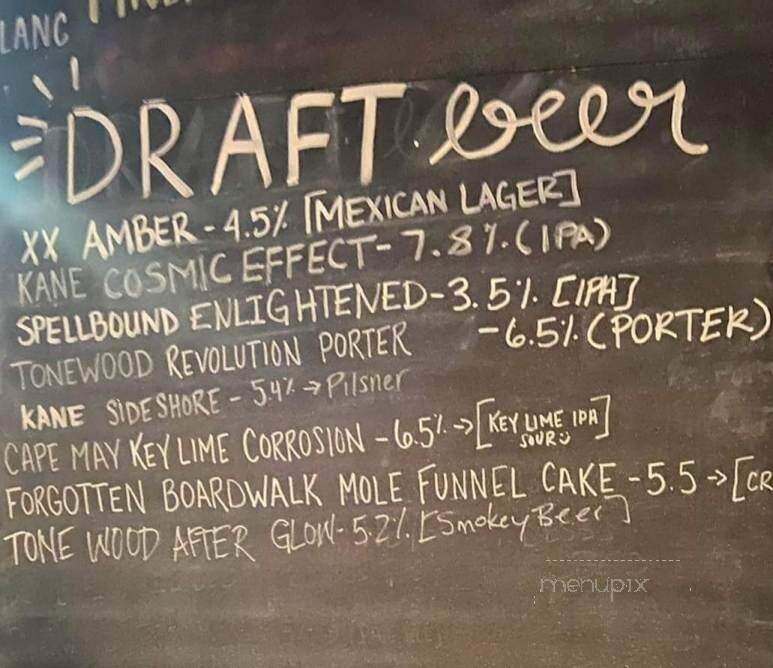 LANC
DRAFT beer
XX AMBER - 4.5% [MEXICAN LAGER]
KANE COSMIC EFFECT - 7.8% (IPA)
SPELLBOUND ENLIGHTENED - 3.5% [IPA]
TONEWOOD REVOLUTION PORTER - 6.5% (PORTER)
KANE SIDESHORE - 5.4% → Pilsner
CAPE MAY KEY LIME CORROSION - 6.5% → [KEY LIME IPA SOUR]
FORGOTTEN BOARDWALK MOLE FUNNEL CAKE - 5.5 → [CR
TONE WOOD AFTER GLOW - 5.2% [Smokey Beer]
menupix